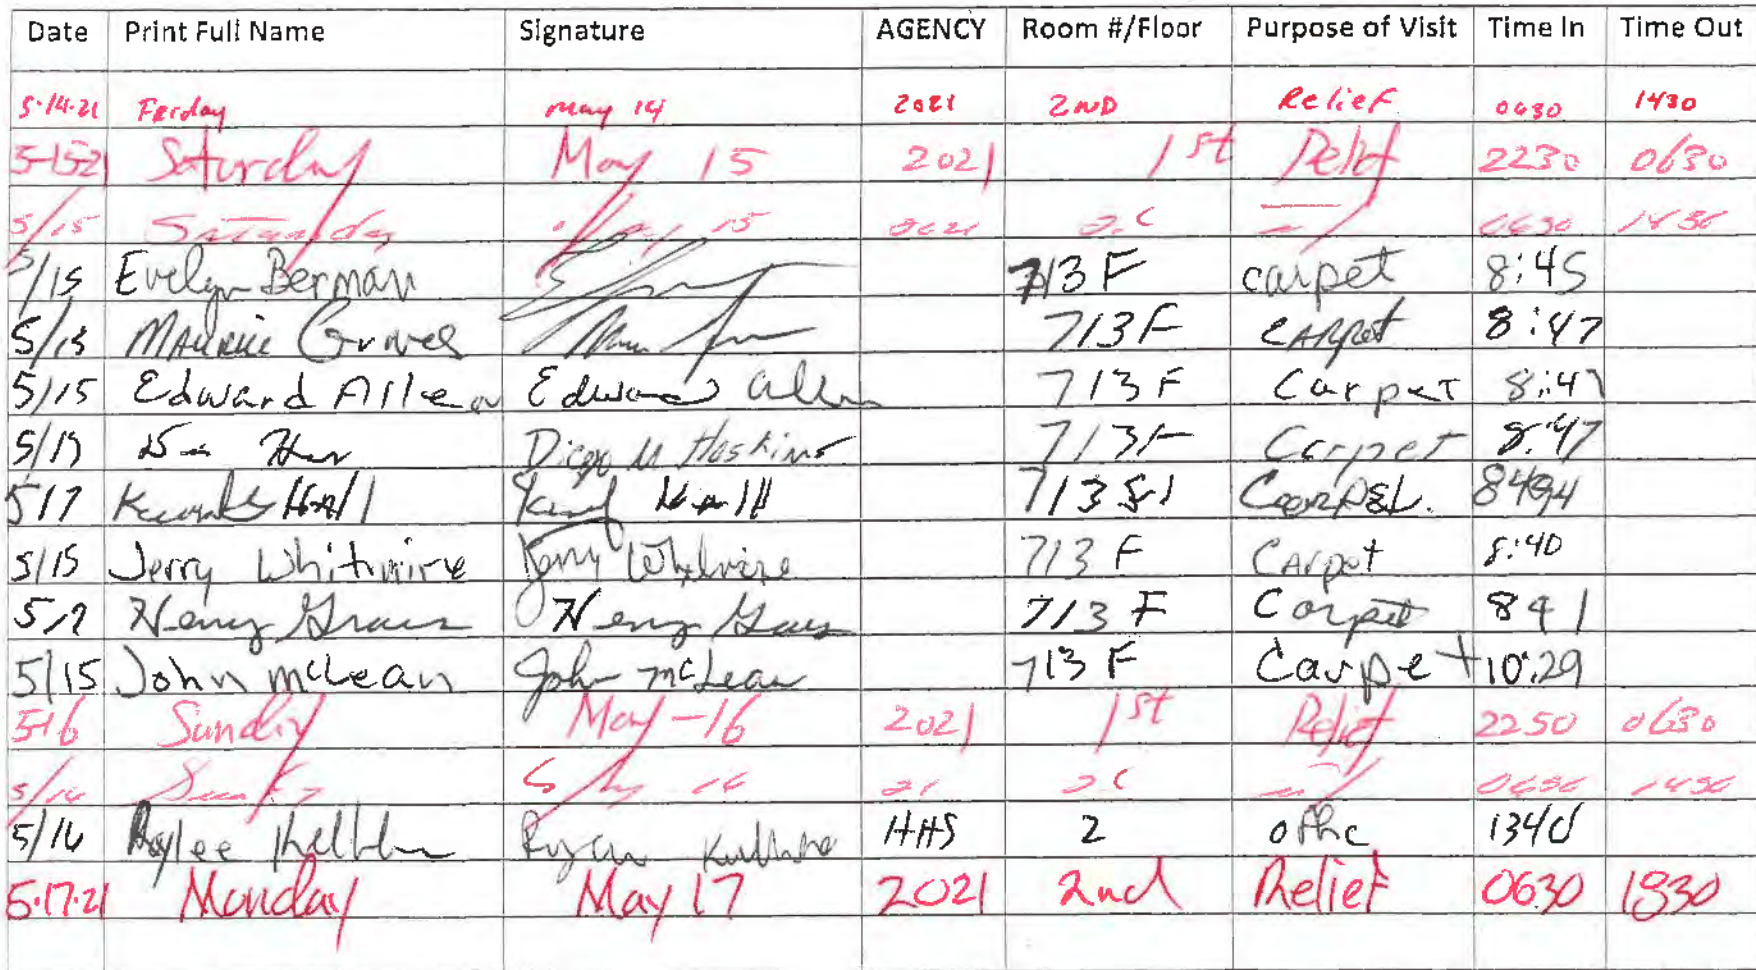 Date Print Full Name Signature AGENCY Room #/Floor Purpose of Visit Time In Time Out
5·14·21 Friday may 14 2021 2ND Relief 0630 1430
5-15-21 Saturday May 15 2021 1st Relief 2230 0630
5/15 Saturday May 15 2021 0630 1430
5/15 Evelyn Berman 713 F carpet 8:45
5/15 Maurice Graves 713F CArpet 8:47
5/15 Edward Allen Edward Allen 713 F Carpet 8:47
Diego M Hoskins 713F Carpet 8:47
517 Hall Hall 713 8494
5/15 Jerry Whitmire Jerry Whitmire 713 F CArpet 8:40
Henry Henry 713 F Carpet 841
5/15 John mcLean John McLean 713 F Carpet 10:29
5-16 Sunday May-16 2021 1st Relief 2250 0630
5/16 16 21 0630 1430
5/16 Ryan HHS 2 1340
5·17·21 Monday May 17 2021 2nd Relief 0630